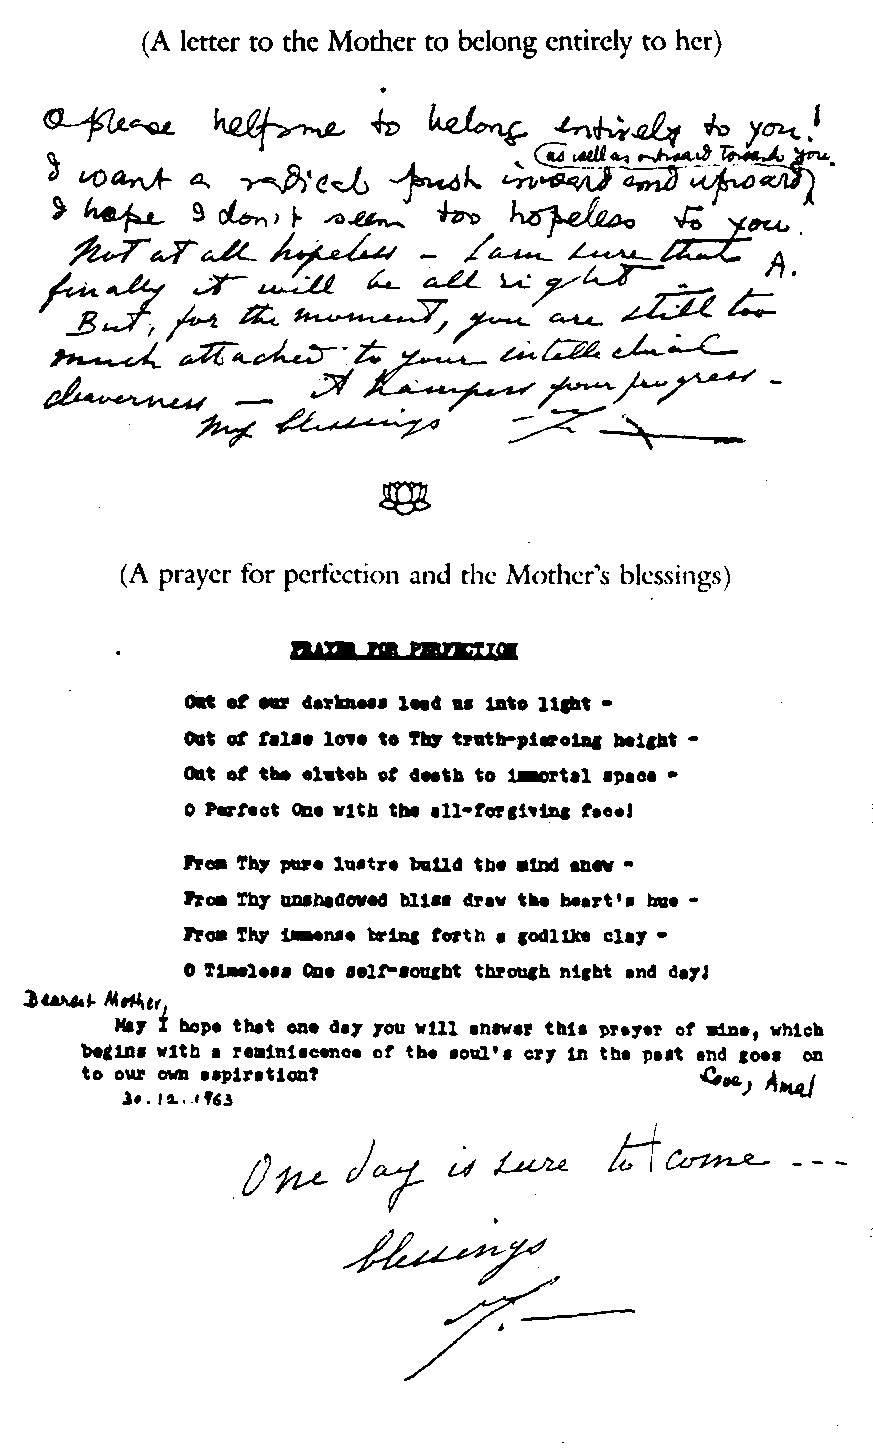 (A letter to the Mother to belong entirely to her)
O please help me to belong entirely to you!
as well as outward towards you.
I want a radical push inward and upward
I hope I don't seem too hopeless to you.
A.
Not at all hopeless – I am sure that
finally it will be all right –
But, for the moment, you are still too
much attached to your intellectual
cleaverness – It hampers your progress –
My blessings
(A prayer for perfection and the Mother's blessings)
PRAYER FOR PERFECTION
Out of our darkness lead us into light -
Out of false love to Thy truth-piercing height -
Out of the clutch of death to immortal space -
O Perfect One with the all-forgiving face!
From Thy pure lustre build the mind anew -
From Thy unshadowed bliss draw the heart's hue -
From Thy immense bring forth a godlike clay -
O Timeless One self-sought through night and day!
Dearest Mother,
May I hope that one day you will answer this prayer of mine, which
begins with a reminiscence of the soul's cry in the past and goes on
to our own aspiration?
Love, Amal
30.12.1963
One day is sure to come ---
blessings